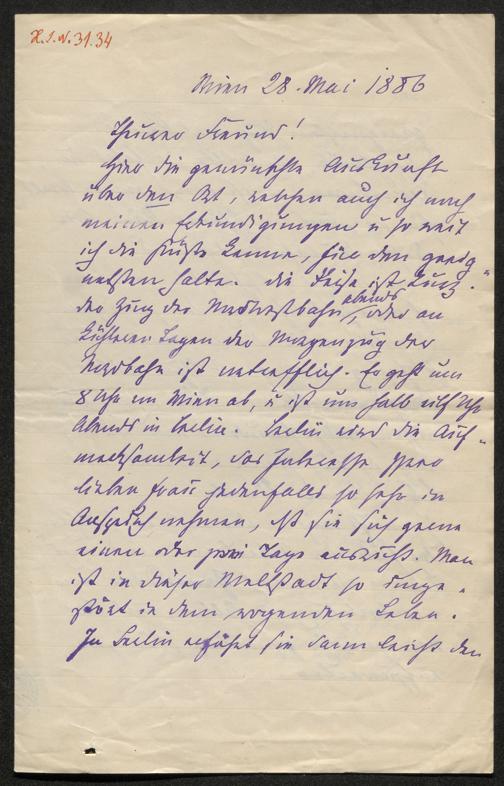 H.I.N. 31.34
Wien 28. Mai 1886
Theurer Freund!
Hier die gewünschte Auskunft
über den Ort, welchen auch ich nach
meinen Erkundigungen u so weit
ich die Küste kenne, für den geeig-
netsten halte. Die Reise ist kurz.
der Zug der Nordwestbahn abends, oder an
kühleren Tagen der Morgenzug der
Nordbahn ist vortrefflich. Er geht um
8 Uhr von Wien ab, u ist um halb eilf Uhr
Abends in Berlin. Berlin wird die Auf-
merksamkeit, das Interesse Ihrer
lieben Frau jedenfalls so sehr in
Anspruch nehmen, daß sie sich gerne
einen oder zwei Tage ausruht. Man
ist in dieser Weltstadt so unge-
stört in dem wogenden Leben.
In Berlin erfährt sie dann leicht den